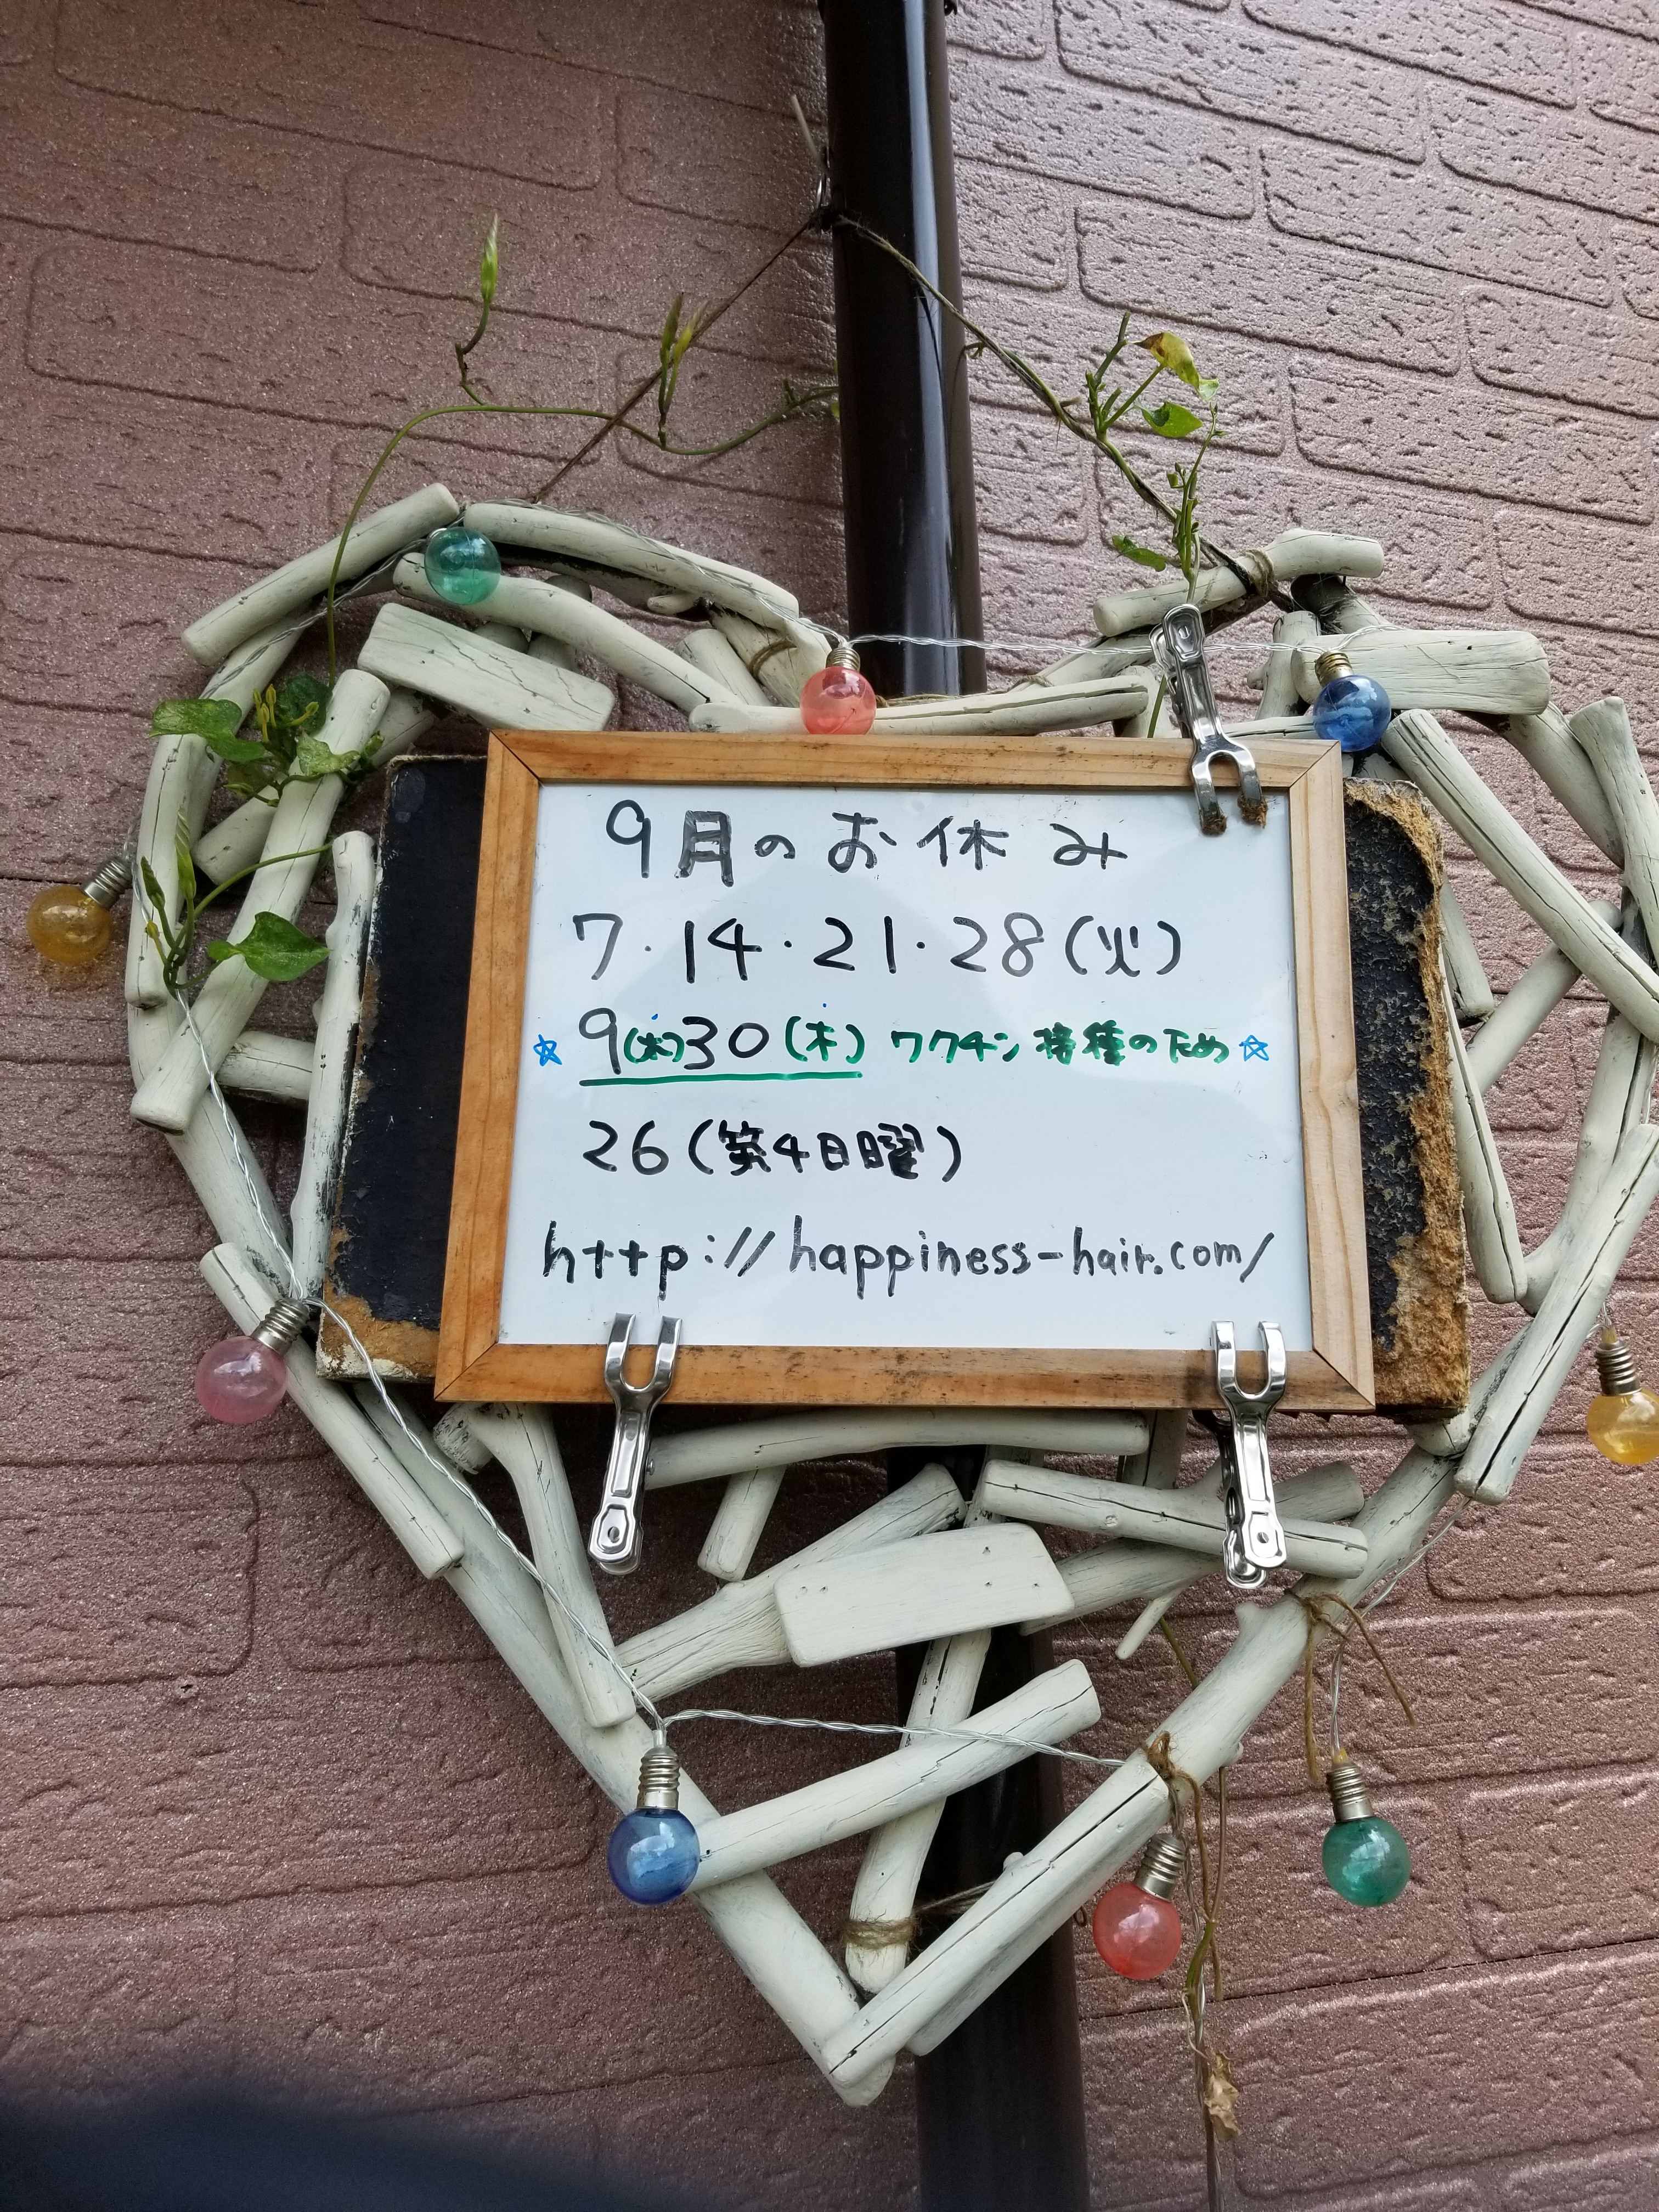 9月のお休み
7・14・21・28(火)
☆ 9(木)30(木) ワクチン接種のため☆
26(第4日曜)
http://happiness-hair.com/